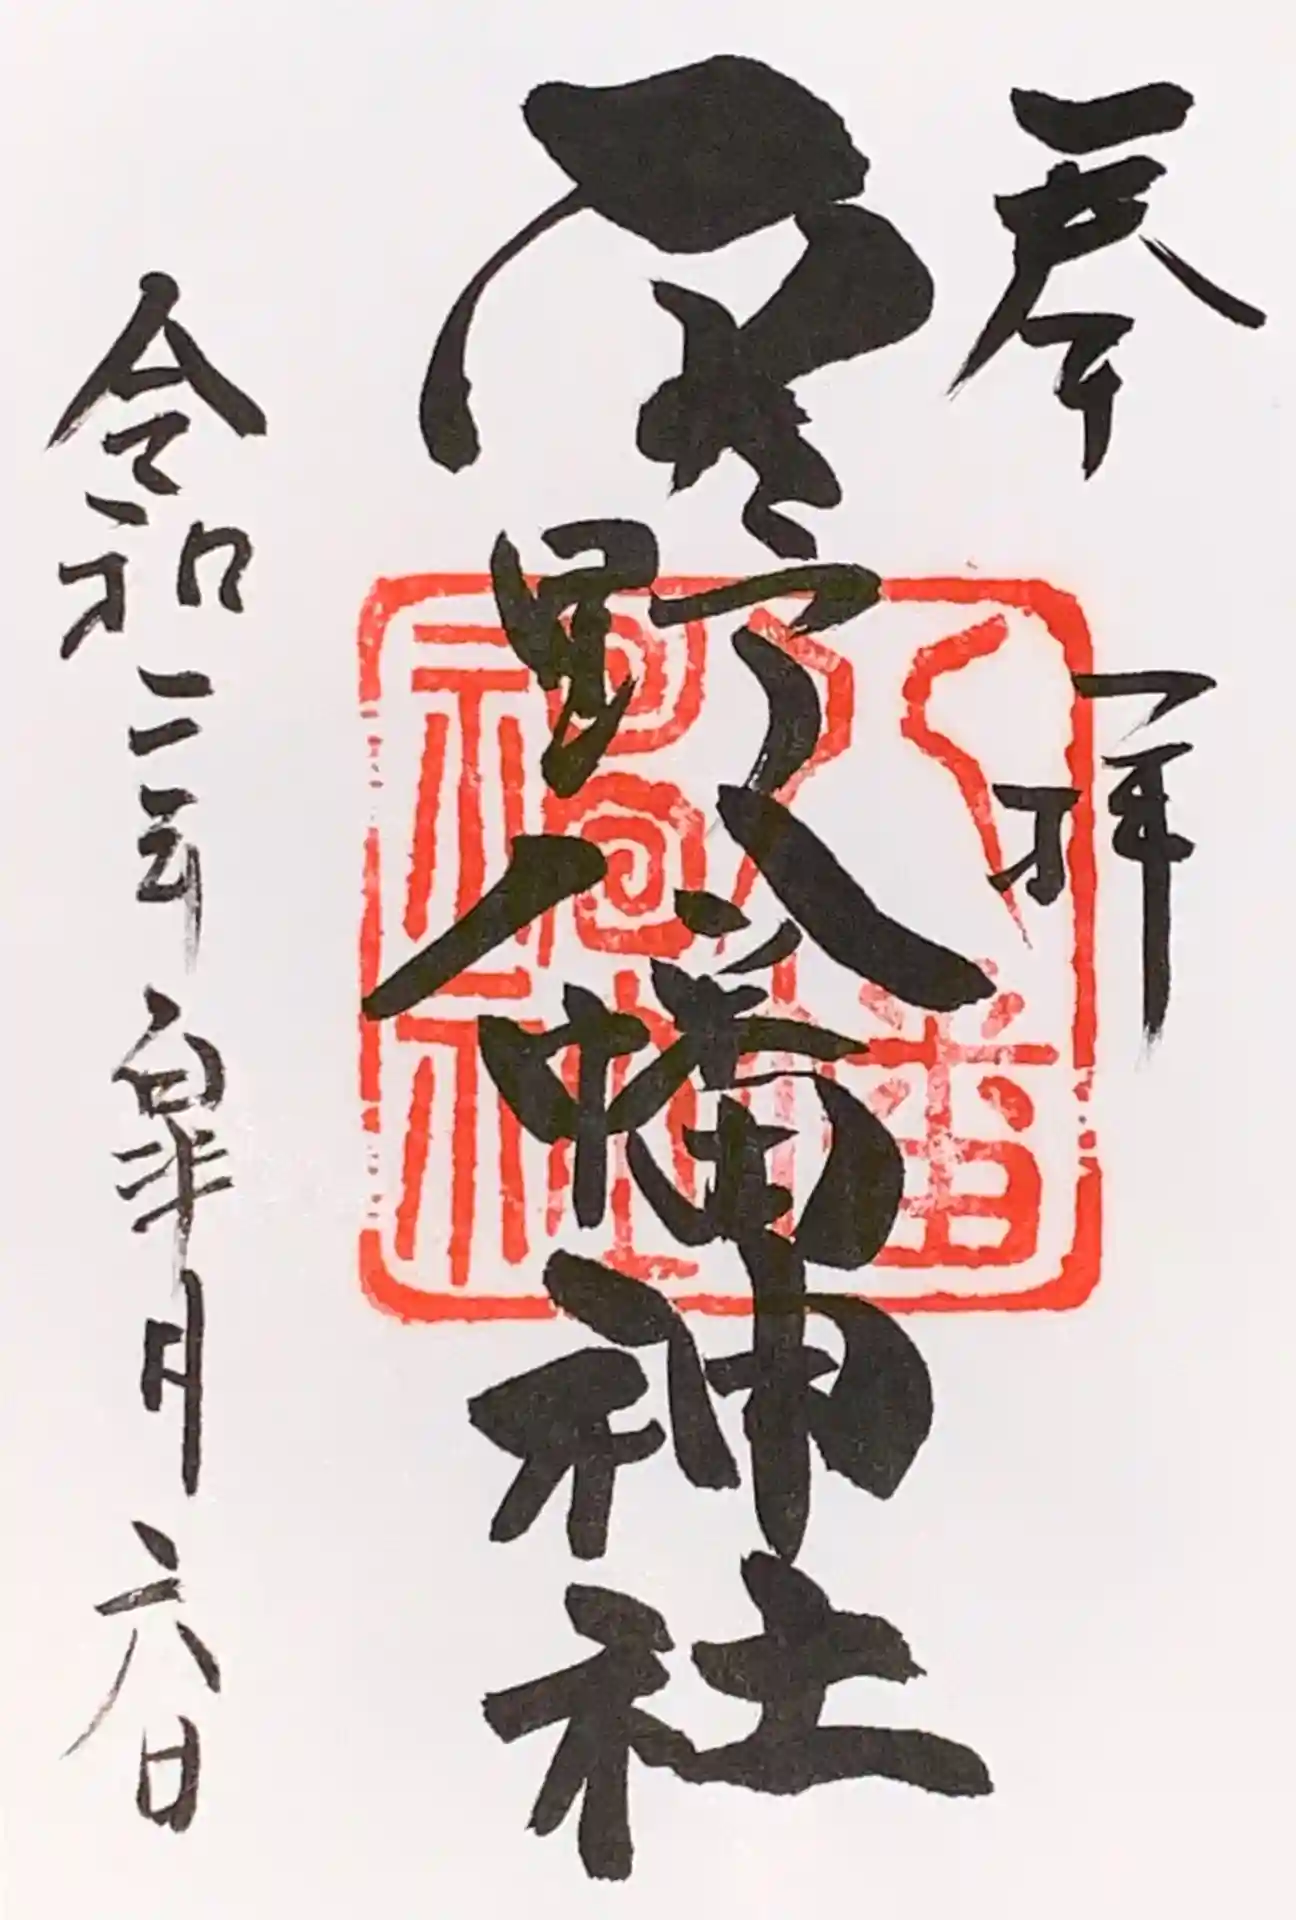 奉拝
野八幡神社
八幡神社
令和三年皐月六日